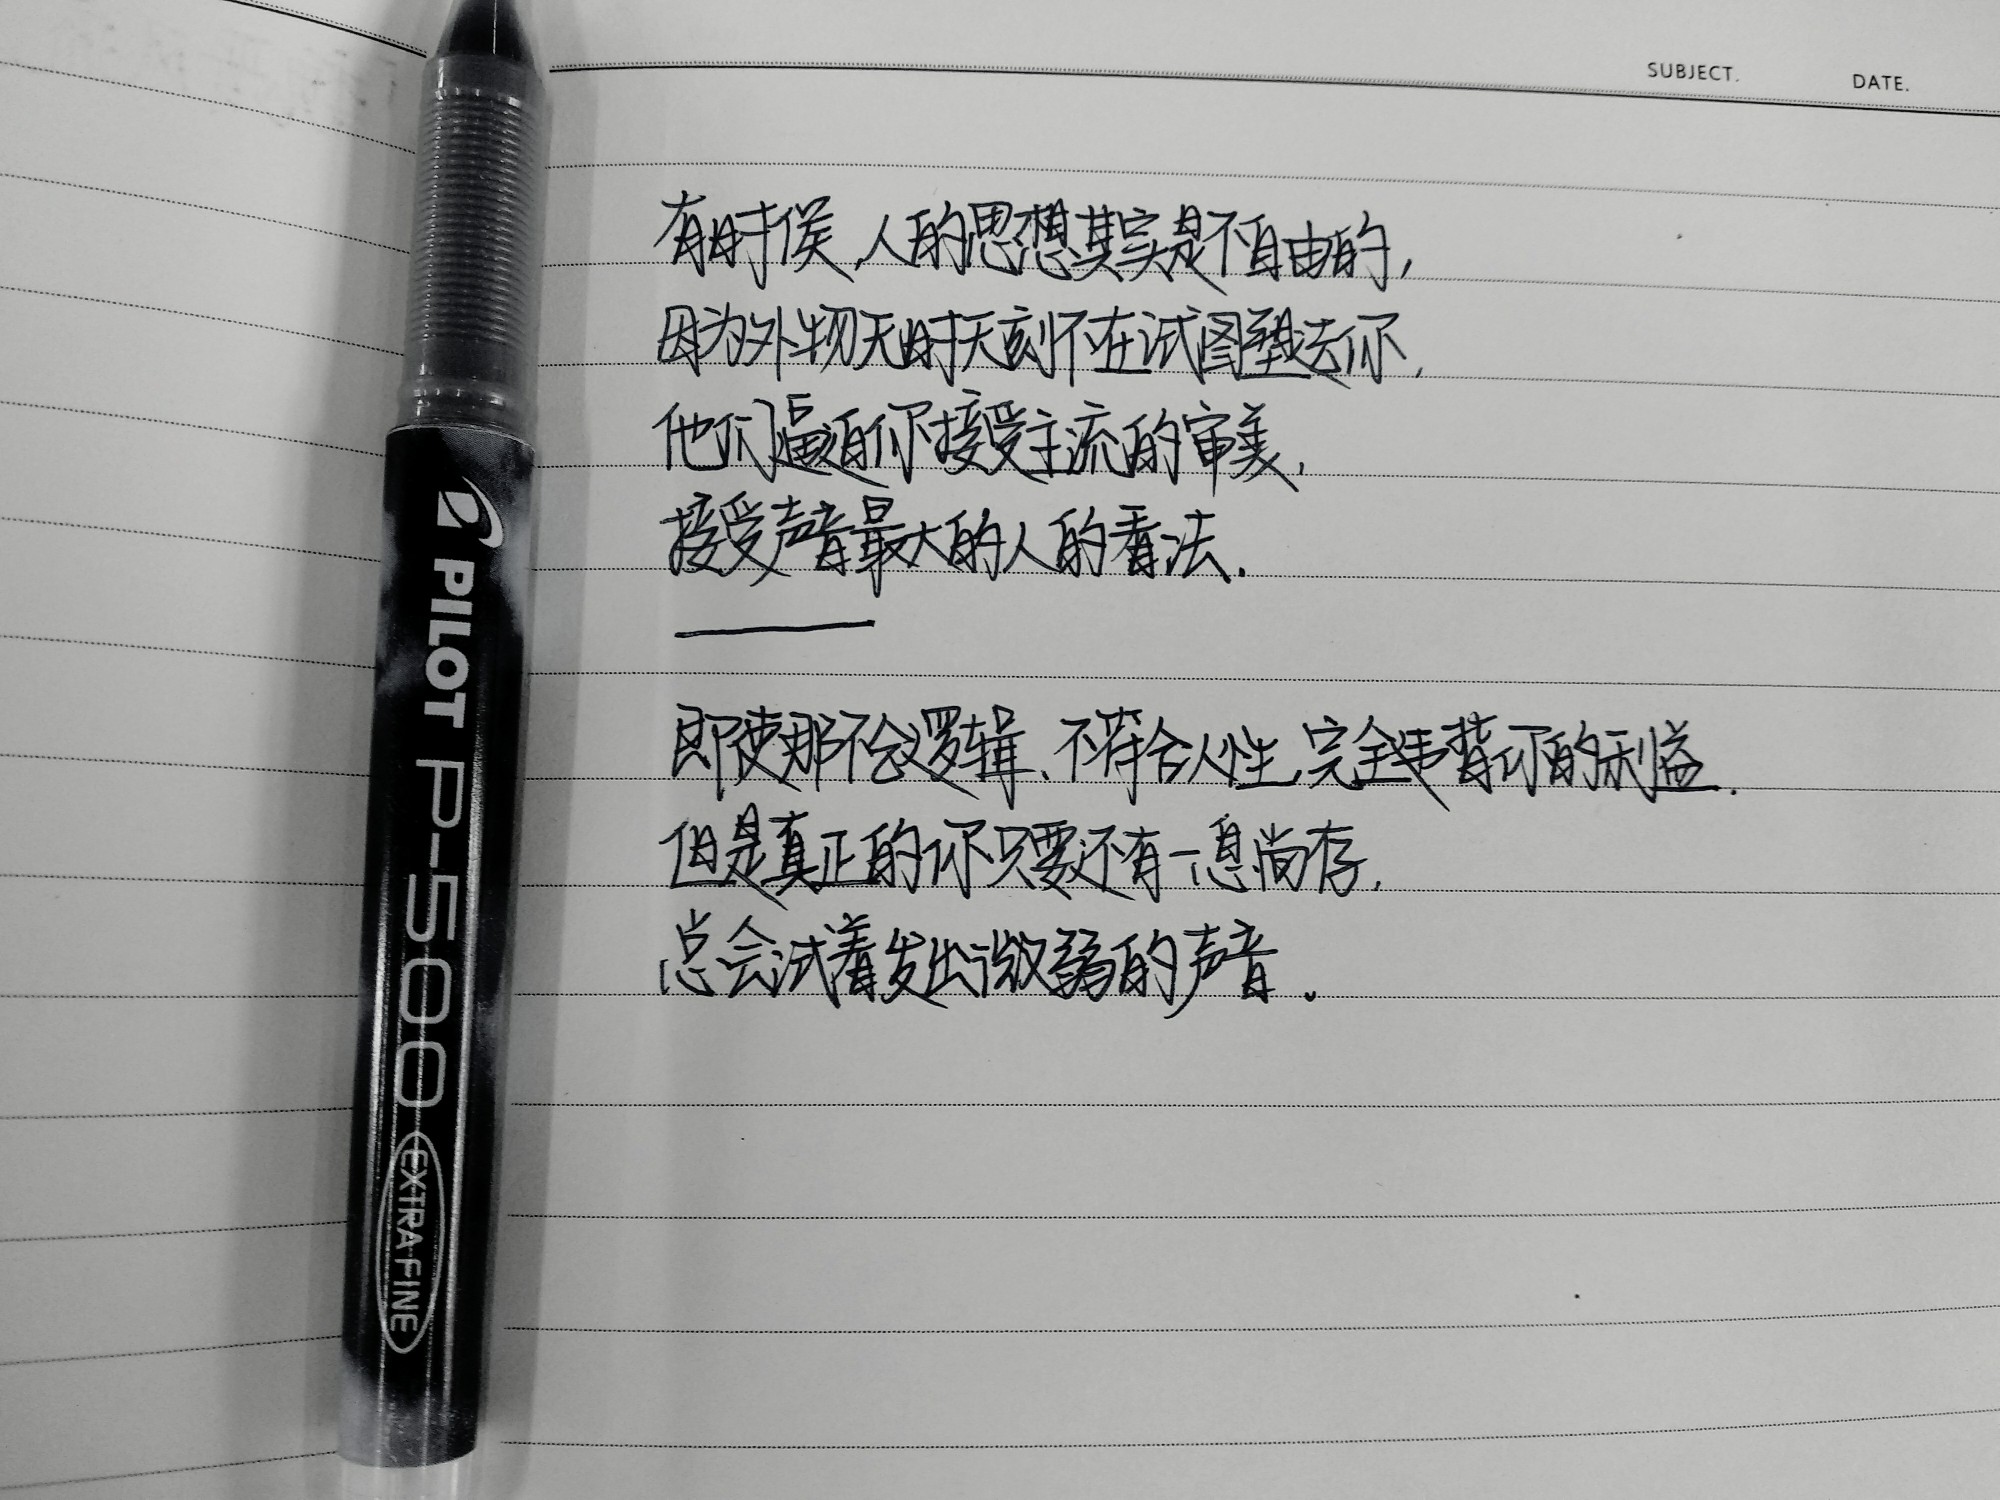 SUBJECT.
DATE.
有时候,人的思想其实是不自由的,
因为外物无时无刻不在试图塑造你,
他们逼迫你接受主流的审美,
接受声音最大的人的看法.
即使那不合逻辑、不符合人性,完全违背你的利益.
但是真正的你只要还有一息尚存,
总会试着发出微弱的声音.
PILOT P-500 EXTRA FINE